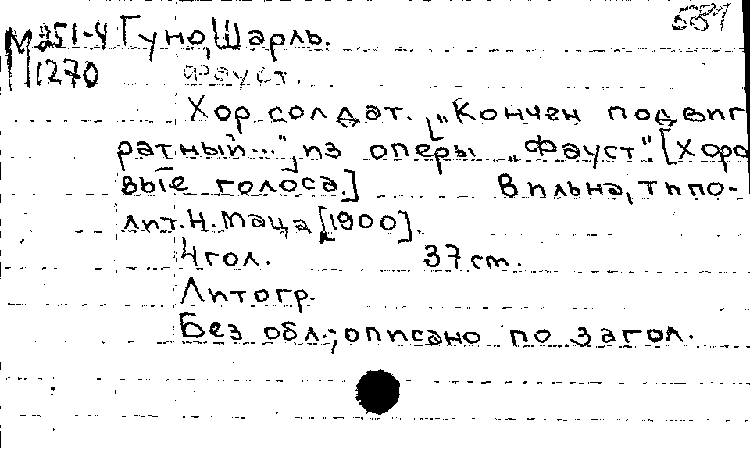 М 251-4 Гуно, Шарль. 581
1270 Фауст.
Хор солдат. „Кончен подвиг
ратный...", из оперы „Фауст". [Хоро
вые голоса.] Вильна, типо-
лит. Н. Маца [1900].
4 гол. 37 cm.
Литогр.
Без обл.; описано по загол.